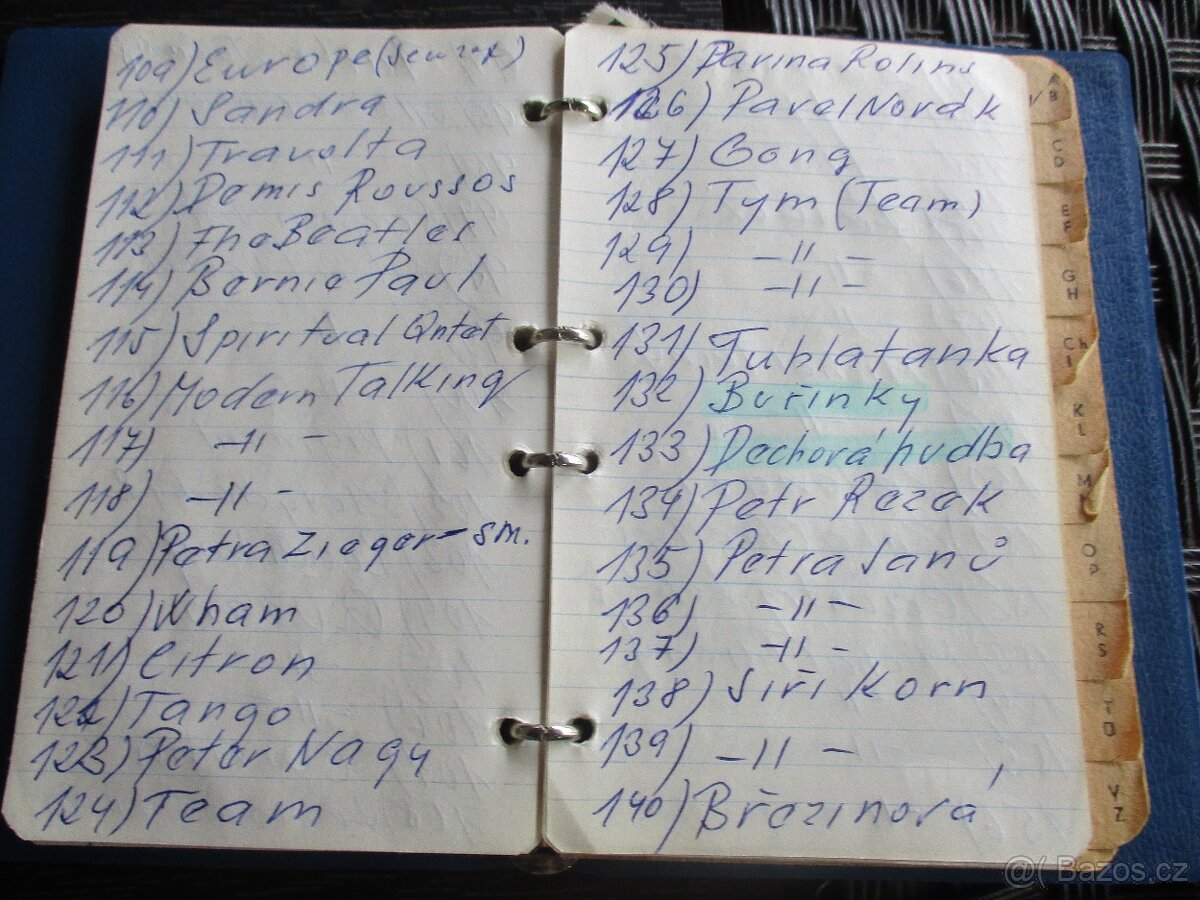 109) Europe
110) Sandra
111) Travolta
112) Demis Roussos
113) The Beatles
114) Bernie Paul
115) Spiritual Qntet
116) Modern Talking
117) -11-
118) -11-
119) Petra Zieger - sm.
120) Wham
121) Citron
122) Tango
123) Peter Nagy
124) Team
125) Darina Rolins
126) Pavel Novák
127) Gong
128) Tym (Team)
129) -11-
130) -11-
131) Tublatanka
132) Buřinky
133) Dechová hudba
134) Petr Rezek
135) Petra Janů
136) -11-
137) -11-
138) Jiří Korn
139) -11-
140) Březinová
A
B
C
D
E
F
G
H
Ch
I
K
L
M
O
P
R
S
T
U
V
Z
Bazos.cz